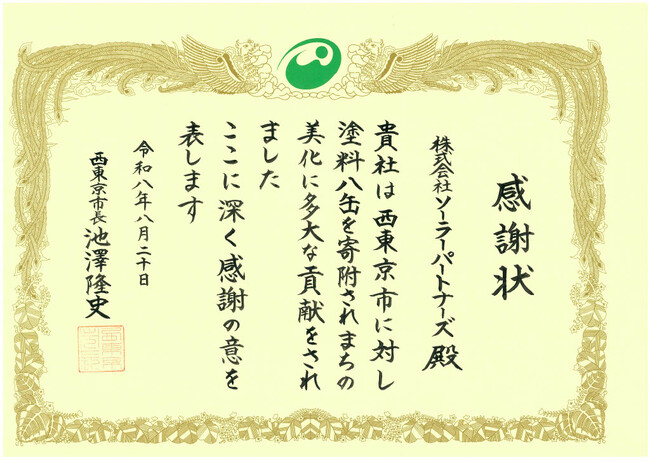 感謝状
株式会社ソーラーパートナーズ 殿
貴社は西東京市に対し
塗料八缶を寄附されまちの
美化に多大な貢献をされ
ました
ここに深く感謝の意を
表します
令和八年八月二十日
西東京市長 池澤隆史